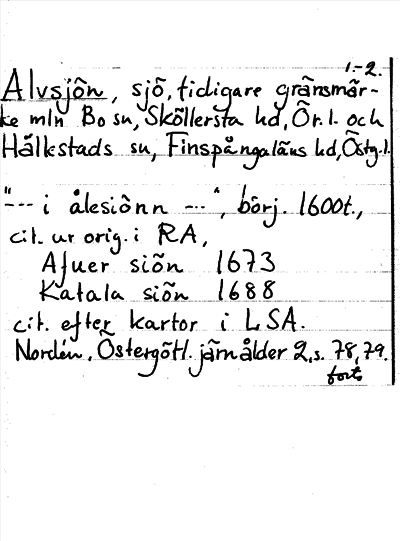 1.-2.
Alvsjön, sjö, tidigare gränsmär-
ke mln Bo sn, Sköllersta hd, Ör. l. och
Hälkstads sn, Finspångaläns hd, Östg. l.
"--- i ålesiönn ---", börj. 1600t.,
cit. ur orig. i RA,
Afuer siön 1673
Katala siön 1688
cit. efter kartor i LSA.
Nordén, Östergötl. järnålder 2, s. 78, 79.
forts